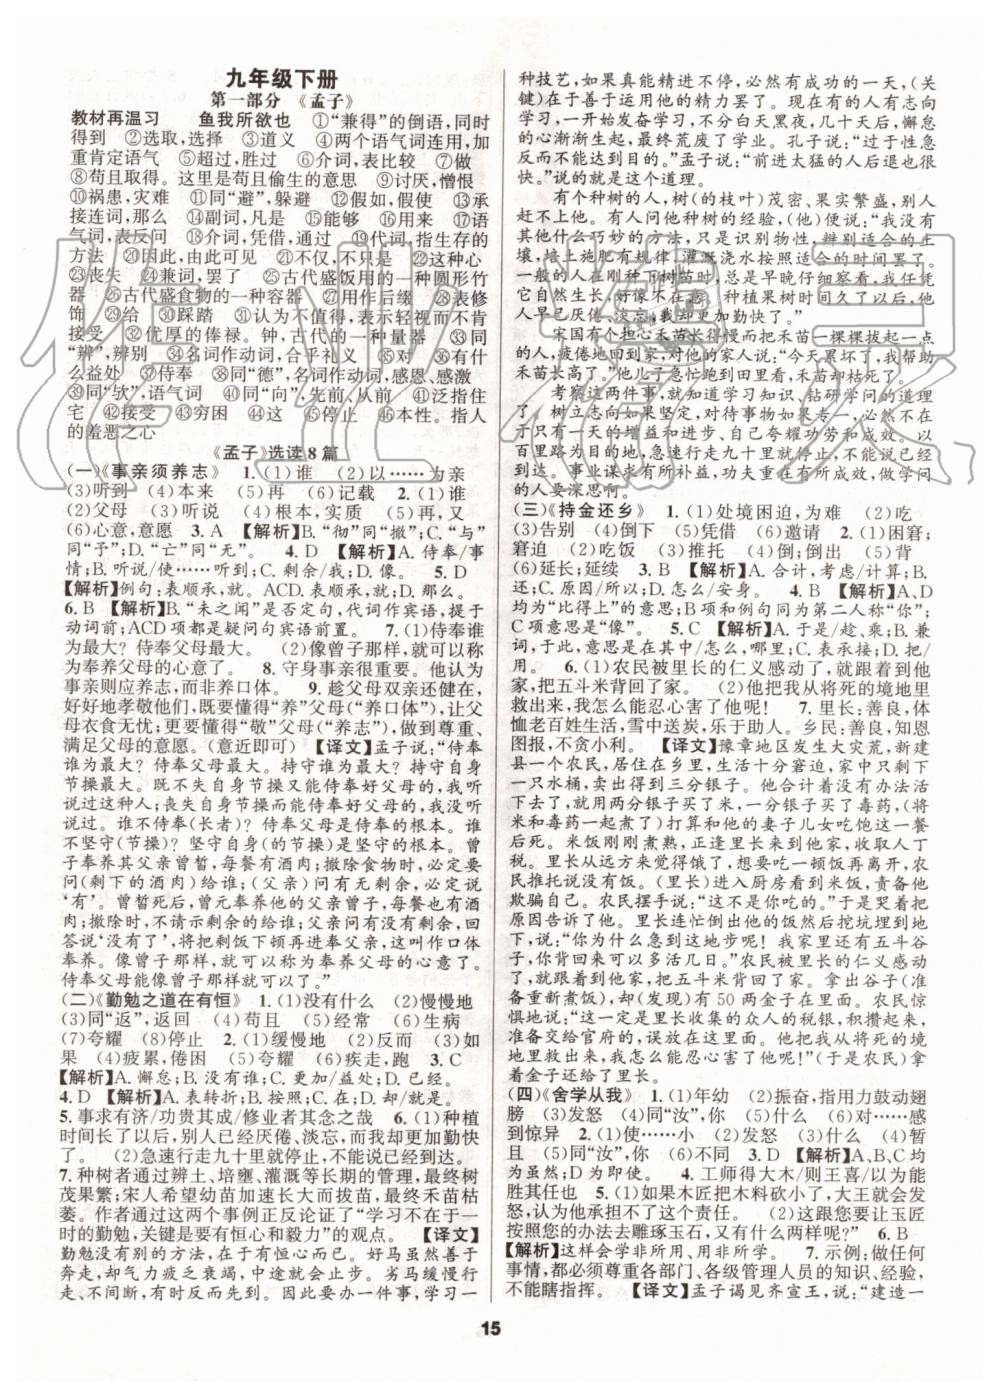 九年级下册
第一部分 《孟子》
教材再温习 鱼我所欲也 ①“兼得”的倒语,同时
得到 ②选取,选择 ③道义 ④两个语气词连用,加
重肯定语气 ⑤超过,胜过 ⑥介词,比 ⑦做
⑧苟且取得。这里是苟且偷生的意思 ⑨讨厌,憎恨
⑩祸患,灾难 ⑪同“避”,躲避 ⑫假如,假使 ⑬承
接连词,那么 ⑭副词,凡是 ⑮能够 ⑯用来 ⑰语
气词,表反问 ⑱介词,凭借,通过 ⑲代词,指生存的
方法 ⑳因此,由此可见 ㉑不仅,不只是 ㉒这种心
㉓丧失 ㉔兼词,罢了 ㉕古代盛饭用的一种圆形竹
器 ㉖古代盛食物的一种容器 ㉗用作后缀 ㉘表修
饰 ㉚践踏 ㉛认为不值得,表示轻视而不肯
接受 ㉜优厚的俸禄。钟,古代的一种量器 ㉝同
“辨”,辨别 ㉞名词作动词,合乎礼义 ㉟对 ㊱有什
么益处 ㊲侍奉 ㊳同“德”,名词作动词,感恩、感激
㊴同“欤”,语气词 ㊵同“向”,先前、从前 ㊶泛指住
宅 ㊷接受 ㊸穷困 ㊹这 ㊺停止 ㊻本性。指人
的羞恶之心
《孟子》选读8篇
(一)《事亲须养志》 1.(1)谁 (2)以……为亲
(3)听到 (4)本来 (5)再 (6)记载 2.(1)谁
(2)父母 (3)听说 (4)根本,实质 (5)再,又
(6)心意,意愿 3. A 【解析】B.“彻”同“撤”;C.“与”
同“予”;D.“亡”同“无”。 4. D 【解析】A. 侍奉/事
情;B. 听说/使……听到;C. 剩余/我;D. 像。 5. D
【解析】例句:表顺承,就。ACD.表顺承,就;D.那么。
6. B 【解析】B.“未之闻”是否定句,代词作宾语,提于
动词前;ACD 项都是疑问句宾语前置。 7.(1)侍奉谁
为最大? 侍奉父母最大。 (2)像曾子那样,就可以称
为奉养父母的心意了。 8. 守身事亲很重要。他认为
事亲则应养志,而非养口体。 9. 趁父母双亲还健在,
好好地孝敬他们,既要懂得“养”父母(“养口体”),让父
母衣食无忧;更要懂得“敬”父母(“养志”),做到尊重、
满足父母的意愿。(意近即可) 【译文】孟子说:“侍奉
谁为最大? 侍奉父母最大。持守谁为最大? 持守自身
节操最大。既不失自身节操又能侍奉好父母的,我听
说过这种人;丧失自身节操而能侍奉好父母的,我没听
说过。谁不侍奉(长者)? 侍奉父母是侍奉的根本。谁
不坚守(节操)? 坚守自身的节操是坚守的根本。曾
子奉养其父亲曾晳,每餐有酒肉;撤除食物时,必定要
问(剩下的酒肉)给谁;(父亲)问有无剩余,必定说
‘有’。曾晳死后,曾元奉养他的父亲曾子,每餐也有酒
肉;撤除时,不请示剩余的给谁;父亲问有没有剩余,回
答说‘没有了’,将把剩饭下顿再进奉父亲,这叫作口体
奉养。像曾子那样,就可以称为奉养父母的心意了。
侍奉父母能像曾子那样就可以了。”
(二)《勤勉之道在有恒》 1.(1)没有什么 (2)慢慢地
(3)同“返”,返回 (4)苟且 (5)经常 (6)生病
(7)夸耀 (8)停止 2.(1)缓慢地 (2)反而 (3)如
果 (4)疲累,倦困 (5)夸耀 (6)疾走,跑 3. C
【解析】A. 懈怠;B. 适合;C. 此,这样;D. 已经。
4. D 【解析】A. 表转折;B. 但是;C. 在;D. 却/就是。
5. 事求有济/功贵其成/修业者其念之哉 6.(1)种植
时间长了以后,别人已经厌倦、淡忘,而我却更加勤快
了。 (2)急速行走九十里就停止,不能说已经到达。
7. 种树者通过辨土、培壅、灌溉等长期的精耕,终致树
茂果繁;宋人希望幼苗加速长大而拔苗,最终禾苗枯
萎。作者通过这两个事例正反论证了“学习不在于一
时的勤勉,关键是要有恒心和毅力”的观点。 【译文】
勤勉没有别的方法,在于有恒心而已。好马虽然善于
奔走,却气力疲乏衰竭,中途就会停止。劣马缓慢行
走,不间断,有时也会到达。因此要办一件事,学习一
种技艺,如果真能精进不停,必然有成功的一天,(关
键)在于善于运用他的精力罢了。现在有的人有志向
学习,一开始发奋学习,不分白天黑夜,几十天后,懈怠
的心渐渐生起,最终荒废了学业。孔子说:“过于性急
反而不能达到目的。”孟子说:“前进太猛的人后退也很
快。”说的就是这个道理。
有个种树的人,树(的枝叶)茂密、果实繁盛,别人
赶不上他。有人问他种树的经验,(他)便说:“我没有
其他什么巧妙的方法,当初种植的时候,辨别适合的土
壤,培土施肥有规律,灌溉浇水按照适合的时间罢了。
一般的人在刚种下树苗时,总是早晚仔细察看,我任凭
它自然生长,好像不在意;种植果树时间久了以后,他
人早已厌倦、淡忘了,我却更加勤快了。”
宋国有个担心禾苗长得慢而把禾苗一棵棵拔起一点
的人,疲倦地回到家,对他的家人说:“今天累坏了,我帮
禾苗长高了。”他儿子急忙跑到田里看,禾苗却枯死了。
考察这两件事,就知道学习知识、钻研学问的道理
了。树立志向如果坚定,对待事物如果专一,必然不会
只有一天的增益和进步,自己夸耀功劳和成效。以
百里路为目标的行走,急速行走九十里就停止,不能说已经
到达。事业谋求有所补益,功夫贵于有所成就,做学问
的人要深思啊。
(三)《持金还乡》 1.(1)处境困迫,为难 (2)吃
(3)告别 (4)倒下 (5)凭借 (6)邀请 2.(1)困窘,
窘迫 (2)吃饭 (3)推托 (4)倒;倒出 (5)背
(6)延长;延续 3. B 【解析】A. 合计,考虑/计算;B.
还;C. 原因/所以;D. 怎么/安身。 4. B 【解析】A、D
均为“比得上”的意思;B项和例句同为第二人称“你”;
C项意思是“像”。 5. C 【解析】A. 于是/趁、乘;B. 兼
词,于此,意思是在其中/怎么,哪里;C. 所以;D. 把/
用。 6.(1)农民被里长的仁义感动了,就跟着到他
家,把五斗米背了回来。 (2)把我从将死的境地里
救出来,我怎么能忍心害了他呢? 7. 里长:善良,体
恤老百姓生活,雪中送炭,乐于助人。乡民:善良,知恩
图报,不贪小利。 【译文】豫章地区发生大灾荒,新建
县一个农民,居住在乡里,生活十分窘迫,家中只剩下
一只水桶,卖出去得到三分银子。他合计着没有办法活
下去了,就用两分银子买了米,一分银子买了毒药,(将
米和毒药一起煮了)打算和他的妻子儿女吃饱这一餐
后死。米饭刚刚煮熟,正逢里长来到他家收人口
税。里长从远处来觉得饿了,想要吃一顿饭再离开,农
民推托说没有饭。(里长)进入厨房看到米饭,责备他
欺骗自己。农民摆手说:“这不是你吃的。”于是哭着把
原因告诉了他。里长连忙倒出他的饭然后挖坑埋到地
下,说:“你为什么急到这地步呢! 我家里还有五斗谷
子,你和我回去背来,还可以多活几日。”农民被里长的
仁义感动了,就跟着到他家,把五斗米背了回来,拿出谷子(准备
重新煮饭),(却)发现有 50 两金子在里面。农民惊
惧地说:“这一定是里长收集的众人的税银,积攒起来,
准备交给官府的,误放在这里的。他把我从将死的境
地里救出来,我怎么能忍心害了他呢!”(于是农民)急忙
拿着金子还给了里长。
(四)《舍学从我》 1.(1)年幼 (2)振奋,指用力鼓动翅
膀 (3)发怒 (4)同“汝”,你 (5)什么 (6)对……感
到惊异 2.(1)使……小 (2)发怒 (3)什么 (4)暂
且 (5)同“汝”,你 (6)不同 3. D 【解析】A、B、C 均
为虽然;D 为即使。 4. 工师得大木/则王喜/以为能
胜其任也 5.(1)如果木匠把木料砍小了,大王就会发
怒,认为他承担不了这个责任。 (2)这跟您要让玉匠
按照您的办法去雕琢玉石,又有什么两样呢?” 6. B
【解析】这样会学非所用、用非所学。 7. 示例:做任何
事情,都必须尊重各部门、各级管理人员的知识、经验,
不能瞎指挥。 【译文】孟子谒见齐宣王,说:“建造一
15